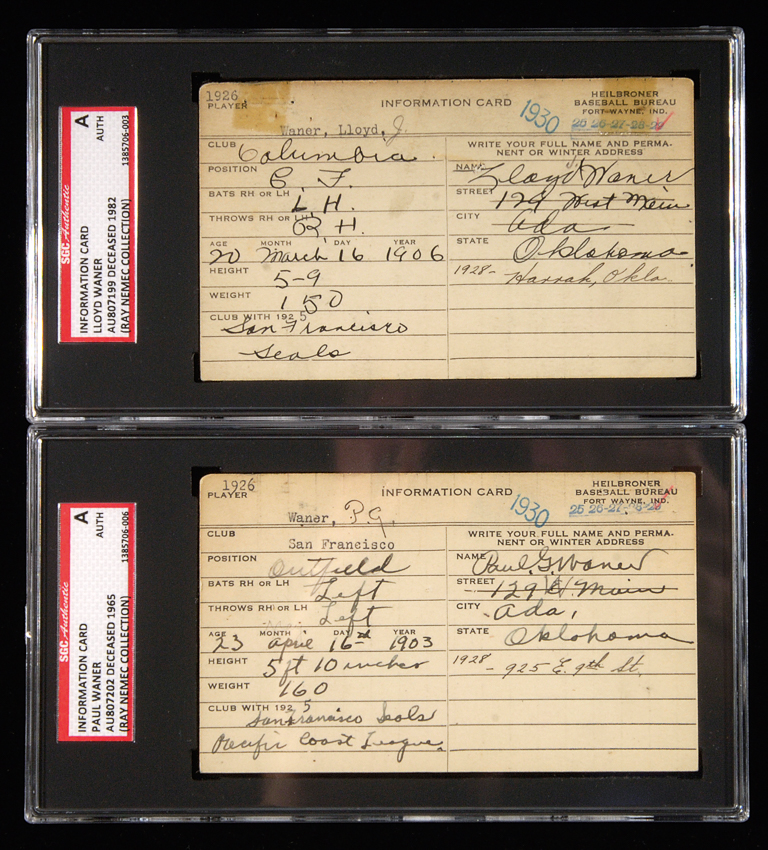 SGC Authentic
INFORMATION CARD
LLOYD WANER
AU807199 DECEASED 1982
(RAY NEMEC COLLECTION)
A
AUTH
1385706-003
1926
PLAYER
INFORMATION CARD
1930
HEILBRONER
BASEBALL BUREAU
FORT WAYNE, IND.
25 26-27-28-29
Waner, Lloyd, J.
CLUB Columbia.
POSITION C. F.
BATS RH OR LH L. H.
THROWS RH OR LH R H.
AGE MONTH DAY YEAR
20 March 16 1906
HEIGHT 5-9
WEIGHT 150
CLUB WITH 192 5
San Francisco
Seals
WRITE YOUR FULL NAME AND PERMA-
NENT OR WINTER ADDRESS
NAME Lloyd J. Waner
STREET 129 West Main
CITY Ada
STATE Oklahoma
1928- Harrah, Okla.
SGC Authentic
INFORMATION CARD
PAUL WANER
AU807202 DECEASED 1965
(RAY NEMEC COLLECTION)
A
AUTH
1385706-006
1926
PLAYER
INFORMATION CARD
1930
HEILBRONER
BASEBALL BUREAU
FORT WAYNE, IND.
25 26-27-28-29
Waner, P.G.
CLUB San Francisco
POSITION Outfield
BATS RH OR LH Left
THROWS RH OR LH Left
AGE MONTH DAY YEAR
23 April 16 1903
HEIGHT 5 ft 10 inches
WEIGHT 160
CLUB WITH 192 5
San Francisco Seals
Pacific Coast League.
WRITE YOUR FULL NAME AND PERMA-
NENT OR WINTER ADDRESS
NAME Paul G. Waner
STREET 129 W. Main
CITY Ada,
STATE Oklahoma
1928 - 925 E. 9th St.